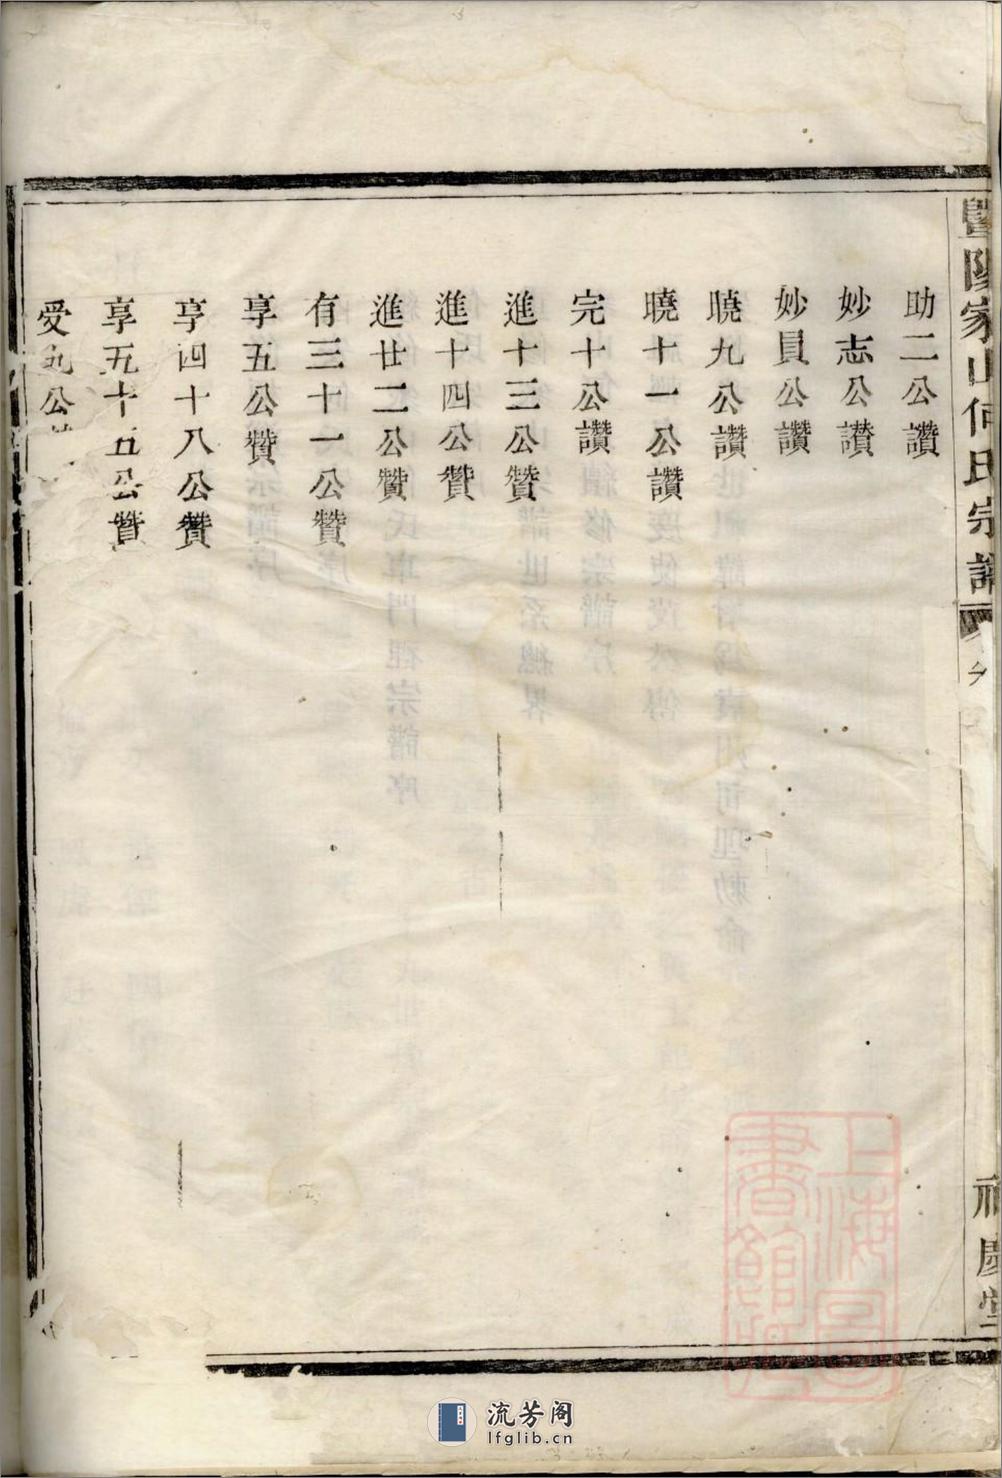 暨陽家山何氏宗譜
慶堂
助二公讚
妙志公讃
妙員公讚
曉九公讚
曉十一公讚
完十公讚
進十三公贊
進十四公贊
進廿二公贊
有三十一公贊
享五公贊
享四十八公贊
享五十五公贊
受九公
上海圖
書館藏
流芳阁
lfglib.cn